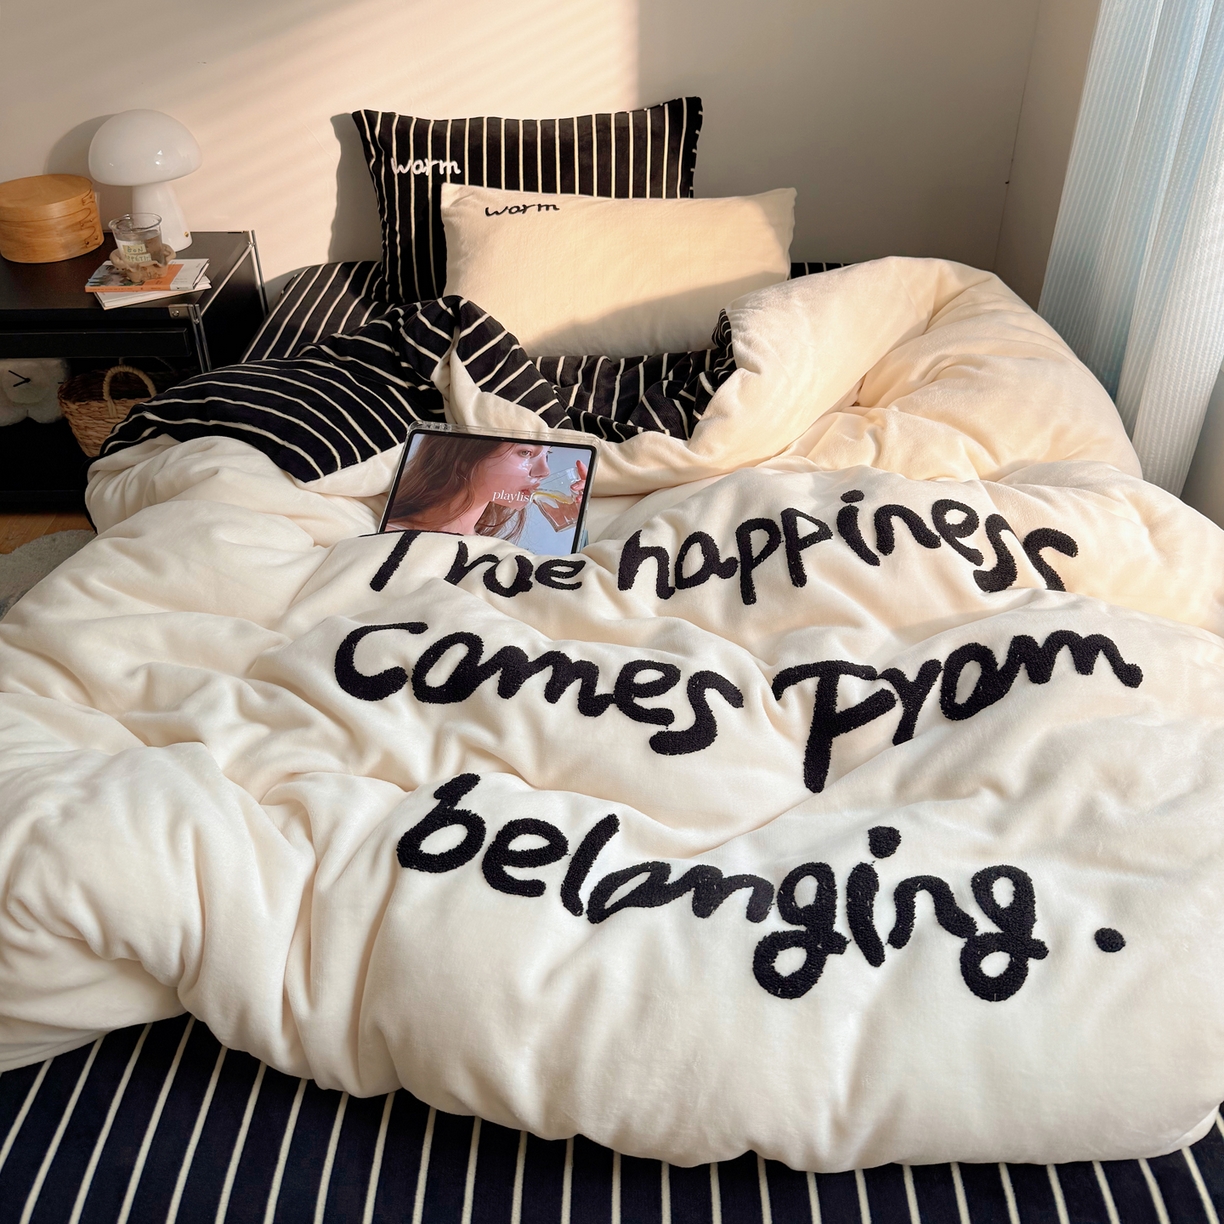 warm
warm
playlist
True happiness
comes From
belonging.